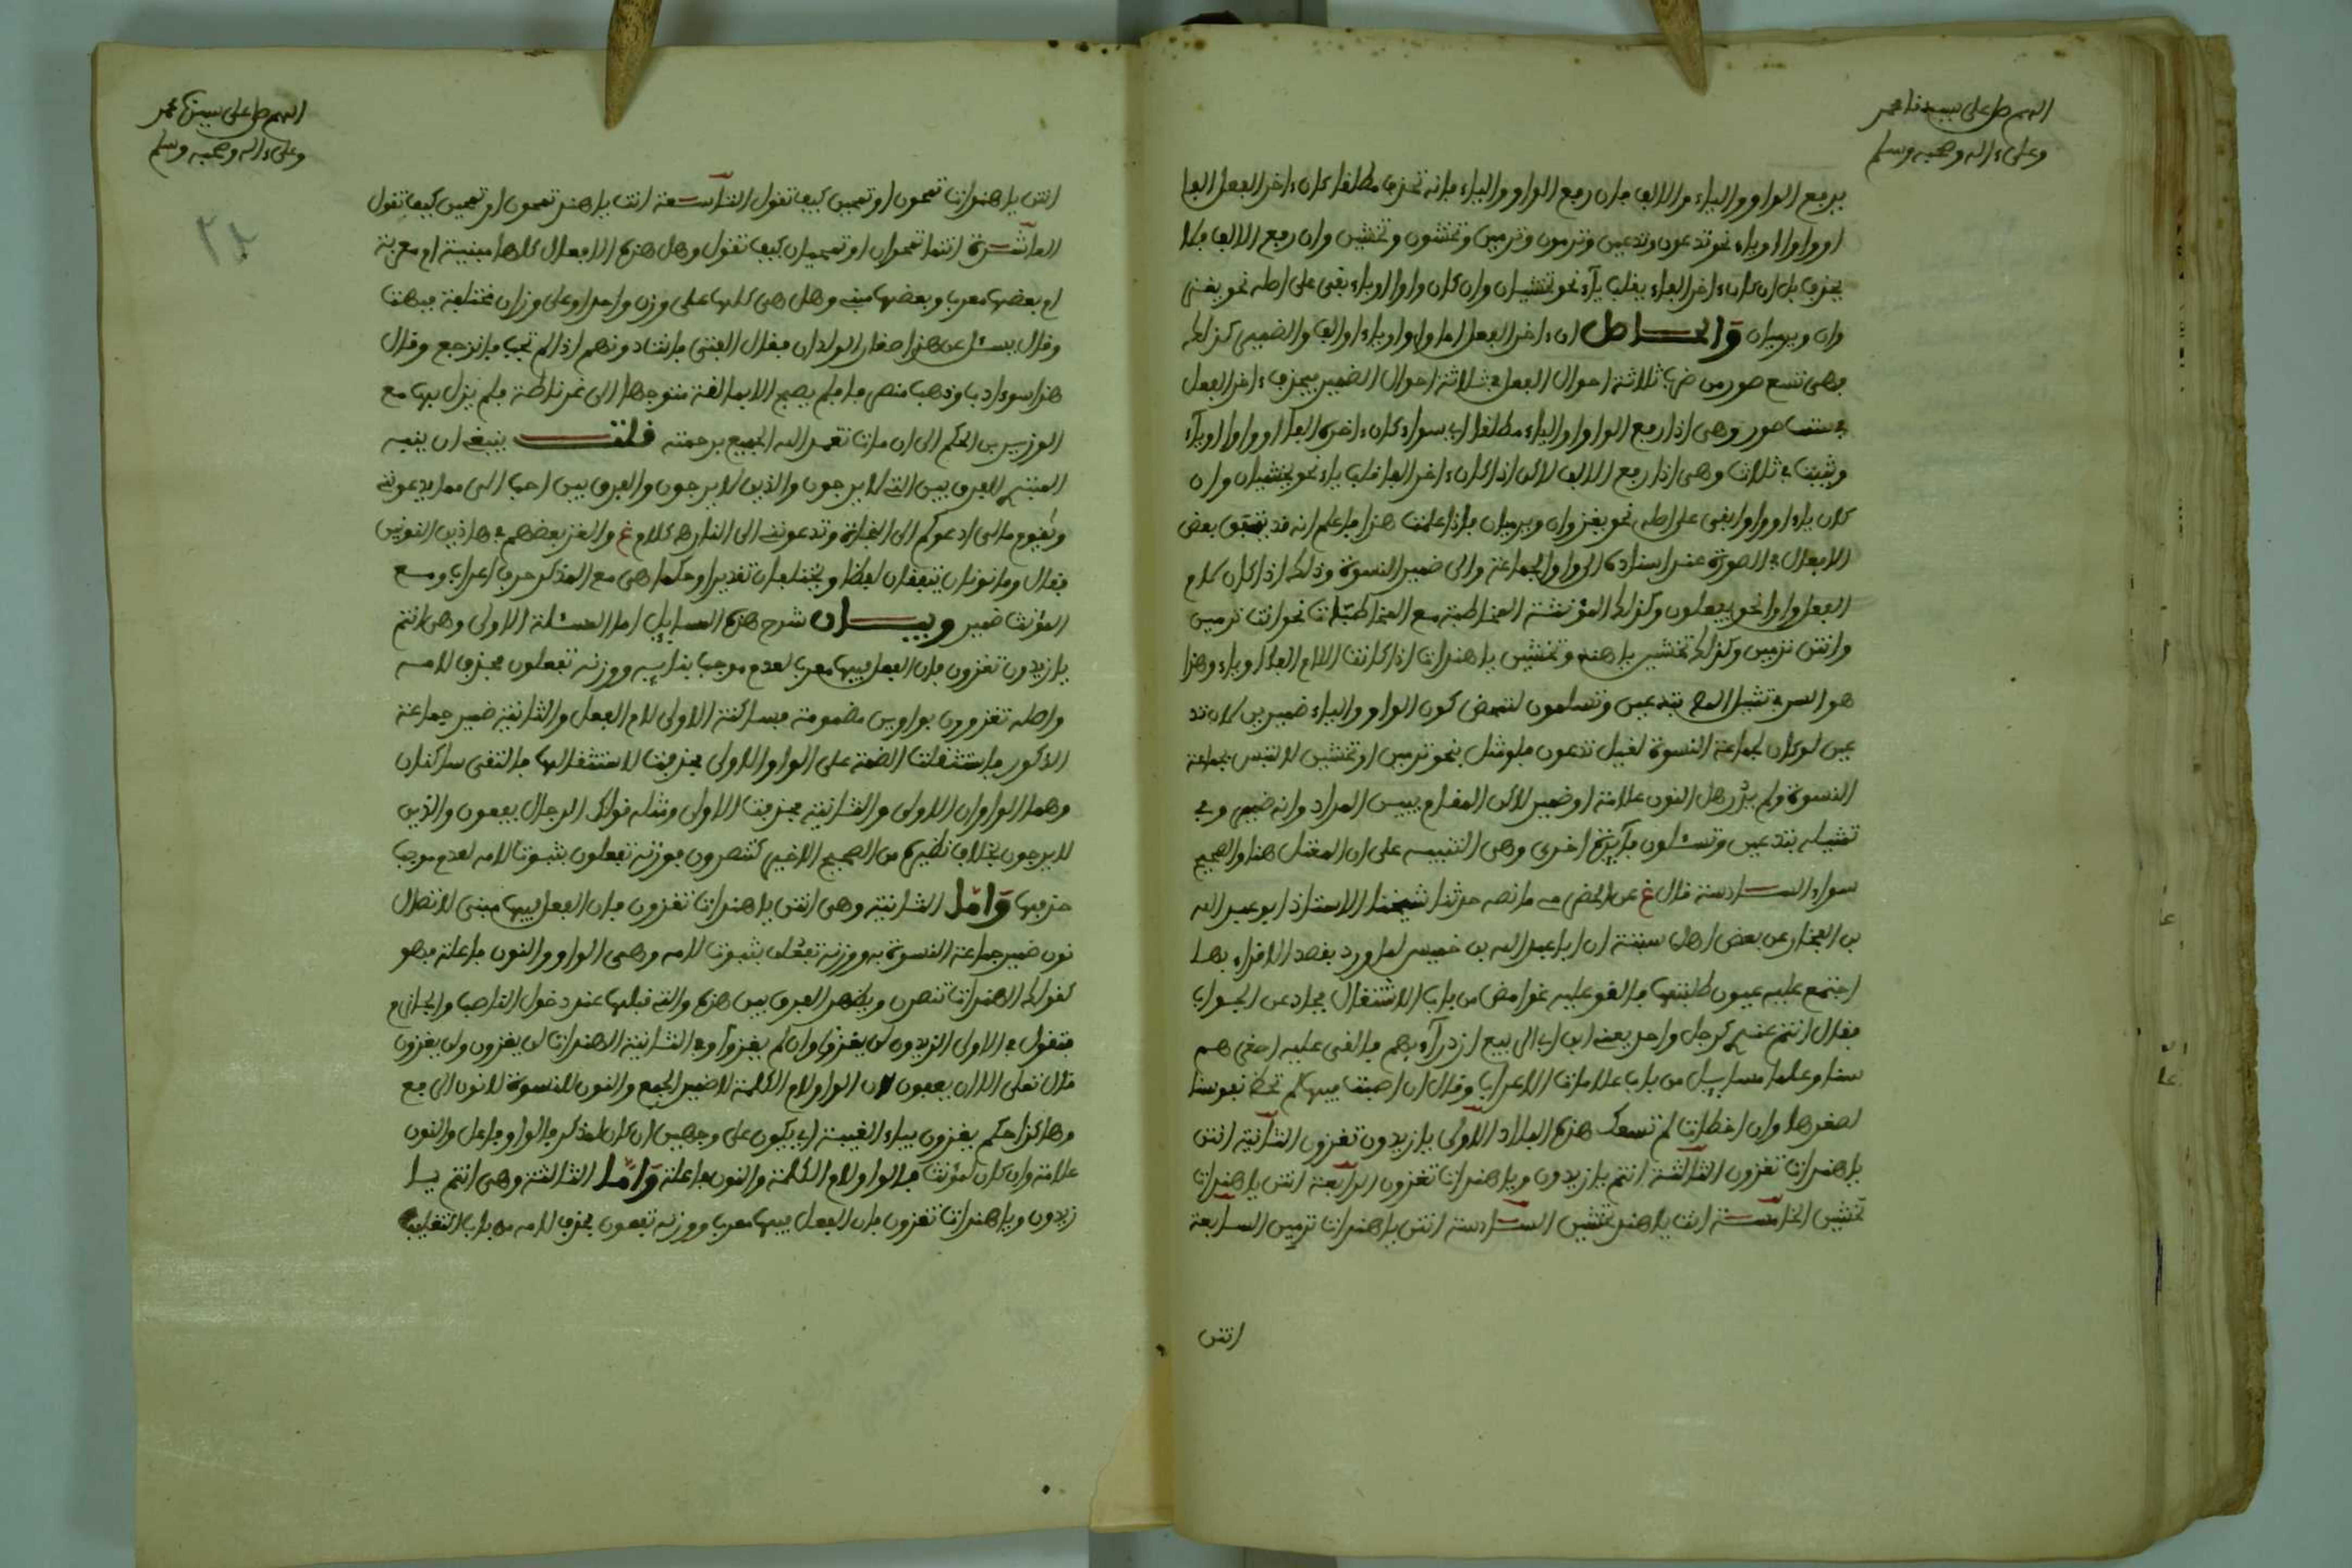 اللهم صل على سيدنا محمد
وعلى ءاله وصحبه وسلم
يرفع الواو والياء والالف فان رفع الواو والياء فانه تحذف مطلقا كان ءاخر الفعل الفا
او واوا او ياء نحو تدعون وتدعين وترمون وترمين وتخشون وتخشين وان رفع الالف فلا
يحذف بل ان كان ءاخر الفاء يقلب ياء نحو تخشيان وان كان واوا او ياء بقى على اصله نحو يغز
وان ويرميان والحاصل ان ءاخر الفعل اما واو او ياء او الف والضمير كذلك
فهى تسع صور من ضرب ثلاثة احوال الفعل في ثلاثة احوال الضمير فيحذف ءاخر الفعل
في ست صور وهى اذا رفع الواو او الياء مطلقا اي سواء كان ءاخره الفا او واوا او ياء
ويثبت في ثلاث وهى اذا رفع الالف لاكن اذا كان ءاخر الفا قلب ياء نحو يخشيان وان
كان ياء او واوا بقى على اصله نحو يغزوان ويرميان فاذا علمت هذا فاعلم انه قد يتفق بعض
الافعال في الصورة عند اسناده الى واو الجماعة والى ضمير النسوة وذلك اذا كان لام
الفعل واوا نحو يفعلون وكذلك المؤنثة المخاطبة مع المخاطبات نحو انت ترمين
وانتن ترمين وكذلك تخشين يا هند وتخشين يا هندات اذا كانت اللام الفا او ياء وهذا
هو السر في تمثيل المص بتدعين وتسلمون لتمحض كون الواو والياء ضميرين لان تد
عين لو كان لجماعة النسوة لقيل تدعون فلو مثل بنحو ترمين او تخشين لالتبس بجماعة
النسوة ولم يدر هل النون علامة او ضمير لاكن المقام يبين المراد وانه ضمير وفي
تمثيله بتدعين وتسئلون فائدة اخرى وهى التنبيه على ان المعتل هنا والصحيح
سواء السادسة قال غ عن بعض مـ ما نصه حدثنا شيخنا الاستاذ ابو عبد الله
بن الفخار عن بعض اهل سبتة ان ابا عبد الله بن خميس لما ورد بقصد الاقراء بها
اجتمع عليه عيون طلبتها فالقو عليه غوامض من باب الاشتغال فحاد عن الجواب
فقال انتم عندي كرجل واحد يعنى ابن ابي الربيع ازدراء بهم فالقى عليه اصغرهم
سنا وعلما مسايل من باب علامات الاعراب وقال ان اصبت فيها لم تحظ نفوسنا
لصغرها وان اخطات لم تسعك هذه البلاد الاولى يا زيدون تغزون الثانية انتن
يا هندات تغزون الثالثة انتم يا زيدون ويا هندات تغزون الرابعة انتن يا هندات
تخشين الخامسة انت يا هند تخشين السادسة انتن يا هندات ترمين السابعة
انتن
اللهم صل على سيدنا محمد
وعلى ءاله وصحبه وسلم
انتن يا هندات تمحون او تمحين كيف تقول التاسعة انت يا هند تمحون او تمحين كيف تقول
العاشرة انتما تمحوان او تمحيان كيف تقول وهل هذه الافعال كلها مبنية او معربة
او بعضها معرب وبعضها مبنى وهل هى كلها على وزن واحد او على وزان مختلفة فبهت
وقال يسئل عن هذا صغار الولدان فقال الفتى فانت دونهم اذا لم تجب فانزعج وقال
هذا سوء ادب وذهب منصرفا فلم يصبح الا بمالقة متوجها الى غرناطة فلم يزل بها مع
الوزير بن الحكم الى ان مات تغمد الله الجميع برحمته قلت ينبغى ان يتنبه
المنبه للفرق بين التى لا يرجون والذين لا يرجون والفرق بين احب الي مما يدعوننى
ويقوم مالى ادعوكم الى النجاة وتدعوننى الى النار هـ كلام غ والغز بعضهم في هاذين النونين
فقال وما نونان يتفقان لفظا ويختلفان تقديرا وحكما هى مع المذكر حرف اعراب ومع
المؤنث ضمير وبيان شرح هذه المسايل اما المسئلة الاولى وهى انتم
يا زيدون تغزون فان الفعل فيها معرب لعدم موجب بنايه ووزنه تفعون بحذف لامه
واصله تغزوون بواوين مضمومة فساكنة الاولى لام الفعل والثانية ضمير جماعة
الذكور فاستثقلت الضمة على الواو الاولى فحذفت لاستثقالها فالتقى ساكنان
وهما الواوان الاولى والثانية فحذفت الاولى ومثله قولك الرجال يعفون والذين
لا يرجون بخلاف نظيره من الصحيح الاخير كتنصرون فوزنه تفعلون بثبوت لامه لعدم موجب
حذفها واما الثانية وهى انتن يا هندات تغزون فان الفعل فيها مبنى لاتصال
نون ضمير جماعة النسوة به ووزنه تفعلن بثبوت لامه وهى الواو والنون فاعلة فهو
كقولك الهندات تنصرن ويظهر الفرق بين هذه والتى قبلها عند دخول الناصب والجازم
فتقول في الاولى الزيدون لن يغزوا وان لم يغزوا وفي الثانية الهندات لن يغزون ولم يغزون
قال تعلى الا ان يعفون لان الواو لام الكلمة لا ضمير الجمع والنون للنسوة لا نون الرفع
وهاكذا حكم يغزون بياء الغيبة اي يكون على وجهين ان كان لمذكر فالواو فاعل والنون
علامة وان كان لمؤنث فالواو لام الكلمة والنون فاعلة واما الثالثة وهى انتم يا
زيدون ويا هندات تغزون فان الفعل فيها معرب ووزنه تفعون بحذف لامه من باب التغليب